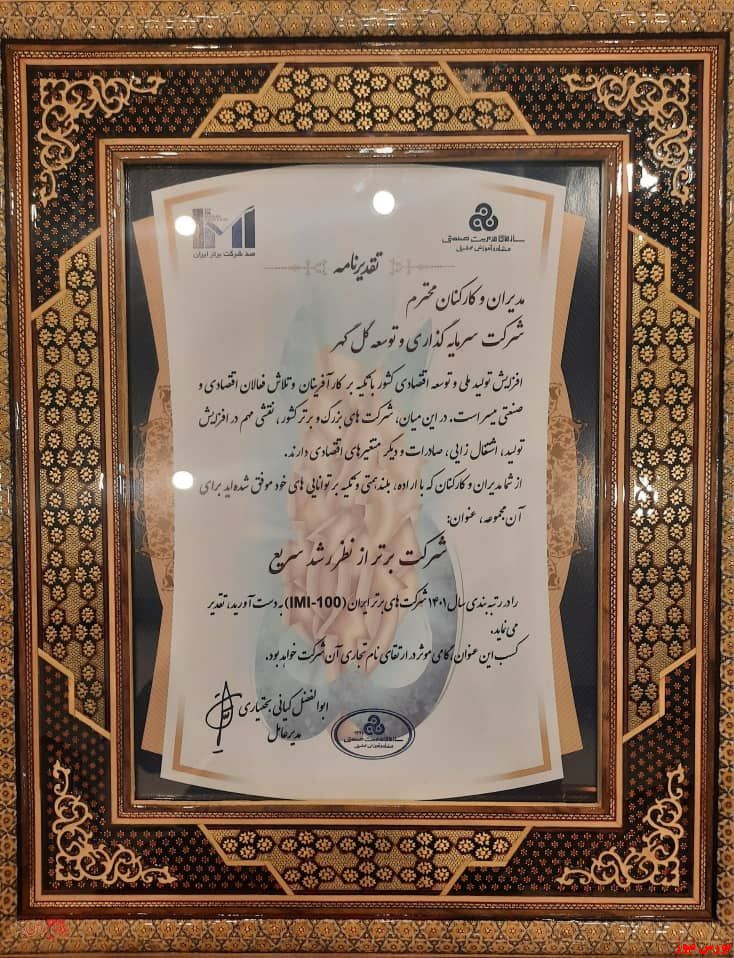 سازمان مدیریت صنعتی
مشاوره آموزش تحقیق
IMI
صد شرکت برتر ایران
تقدیرنامه
مدیران و کارکنان محترم
شرکت سرمایه گذاری و توسعه گل گهر
افزایش تولید ملی و توسعه اقتصادی کشور با تکیه بر کارآفرینان و تلاش فعالان اقتصادی و
صنعتی میسر است. در این میان، شرکت های بزرگ و برتر کشور، نقشی مهم در افزایش
تولید، اشتغال زایی، صادرات و دیگر متغیرهای اقتصادی دارند.
از شما مدیران و کارکنان که با اراده، بلندهمتی و تکیه بر توانایی های خود موفق شده اید برای
آن مجموعه، عنوان:
شرکت برتر از نظر رشد سریع
را در رتبه بندی سال ۱۴۰۱ شرکت های برتر ایران (IMI-100) به دست آورید، تقدیر
می نماید.
کسب این عنوان، گامی موثر در ارتقای نام تجاری آن شرکت خواهد بود.
ابوالفضل کیانی بختیاری
مدیرعامل
سازمان مدیریت صنعتی
مشاوره آموزش تحقیق
بورس نیوز